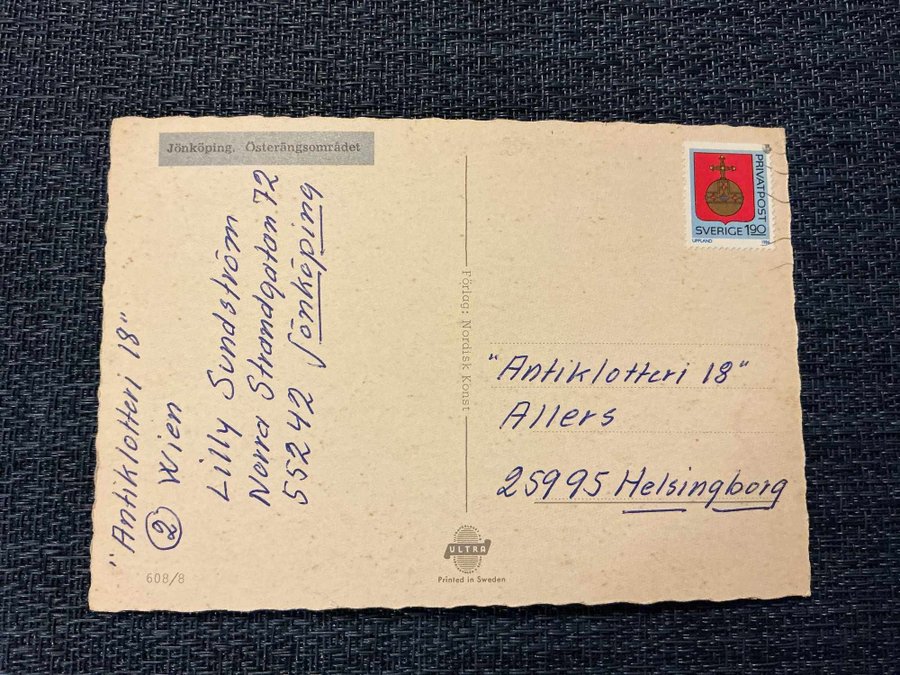 Jönköping. Österängsområdet
"Antiklotteri 18"
② Wien
Lilly Sundström
Norra Strandgatan 72
55242 Jönköping
608/8
Förlag: Nordisk Konst
ULTRA
Printed in Sweden
PRIVATPOST
SVERIGE 1.90
UPPLAND
"Antiklotteri 18"
Allers
25995 Helsingborg